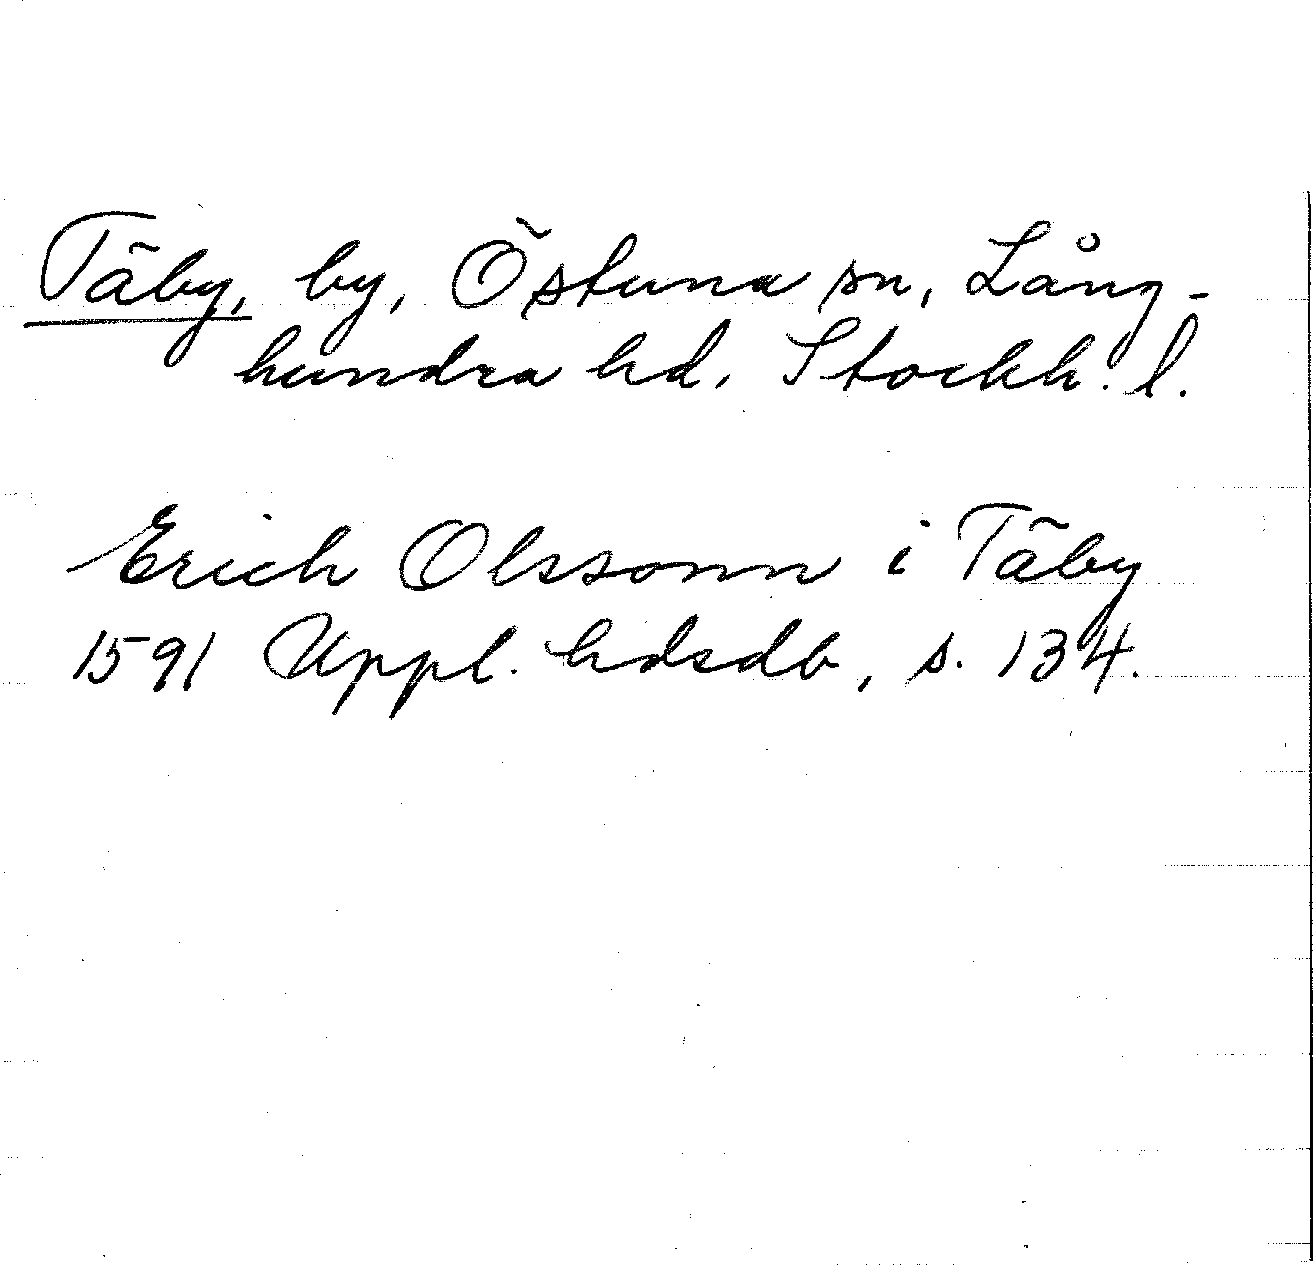 Täby, by, Östuna sn, Lång-
hundra hd. Stockh. l.
Erich Olssonn i Täby
1591 Uppl. hdsdb, s. 134.